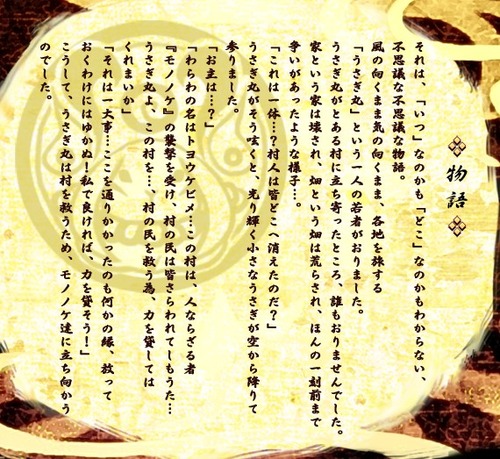 物語
それは、「いつ」なのかも「どこ」なのかもわからない、
不思議な不思議な物語。
風の向くまま気の向くまま、各地を旅する
「うさぎ丸」という一人の若者がおりました。
うさぎ丸がとある村に立ち寄ったところ、誰もおりませんでした。
家という家は壊され、畑という畑は荒らされ、ほんの一刻前まで
争いがあったような様子…。
「これは一体…？村人は皆どこへ消えたのだ？」
うさぎ丸がそう呟くと、光り輝く小さなうさぎが空から降りて
参りました。
「お主は…？」
「わらわの名はトヨウケビメ…この村は、人ならざる者
『モノノケ』の襲撃を受け、村の民は皆さらわれてしもうた…
うさぎ丸よ、この村を…、村の民を救う為、力を貸しては
くれまいか」
「それは一大事…ここを通りかかったのも何かの縁、放って
おくわけにはゆかぬ！私で良ければ、力を貸そう！」
こうして、うさぎ丸は村を救うため、モノノケ達に立ち向かう
のでした。